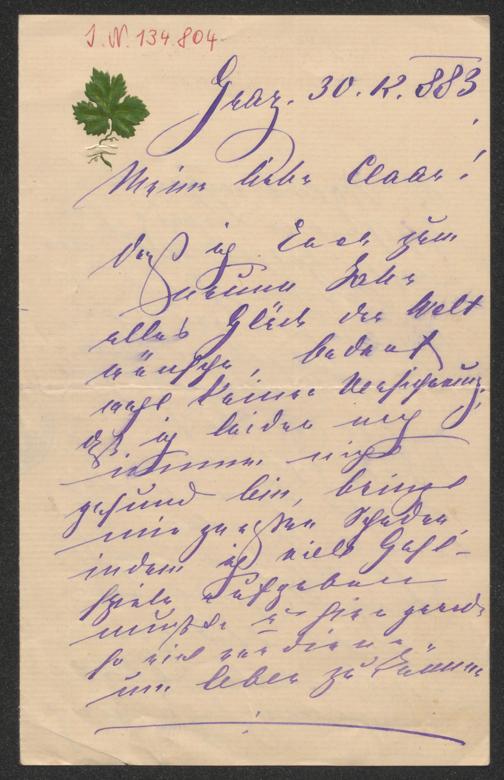 I. N. 134.804
Graz. 30. 12. 883
Meine liebe Claar!
Daß ich Euch zum
neuen Jahr
alles Glück der Welt
wünsche, bedarf
wohl keiner Versicherung.
Daß ich leider noch
immer nicht
gesund bin, bringt
mir großen Schaden,
indem ich viele Gast-
spiele aufgeben
mußte u hier gerade
so viel verdiene
um leben zu können